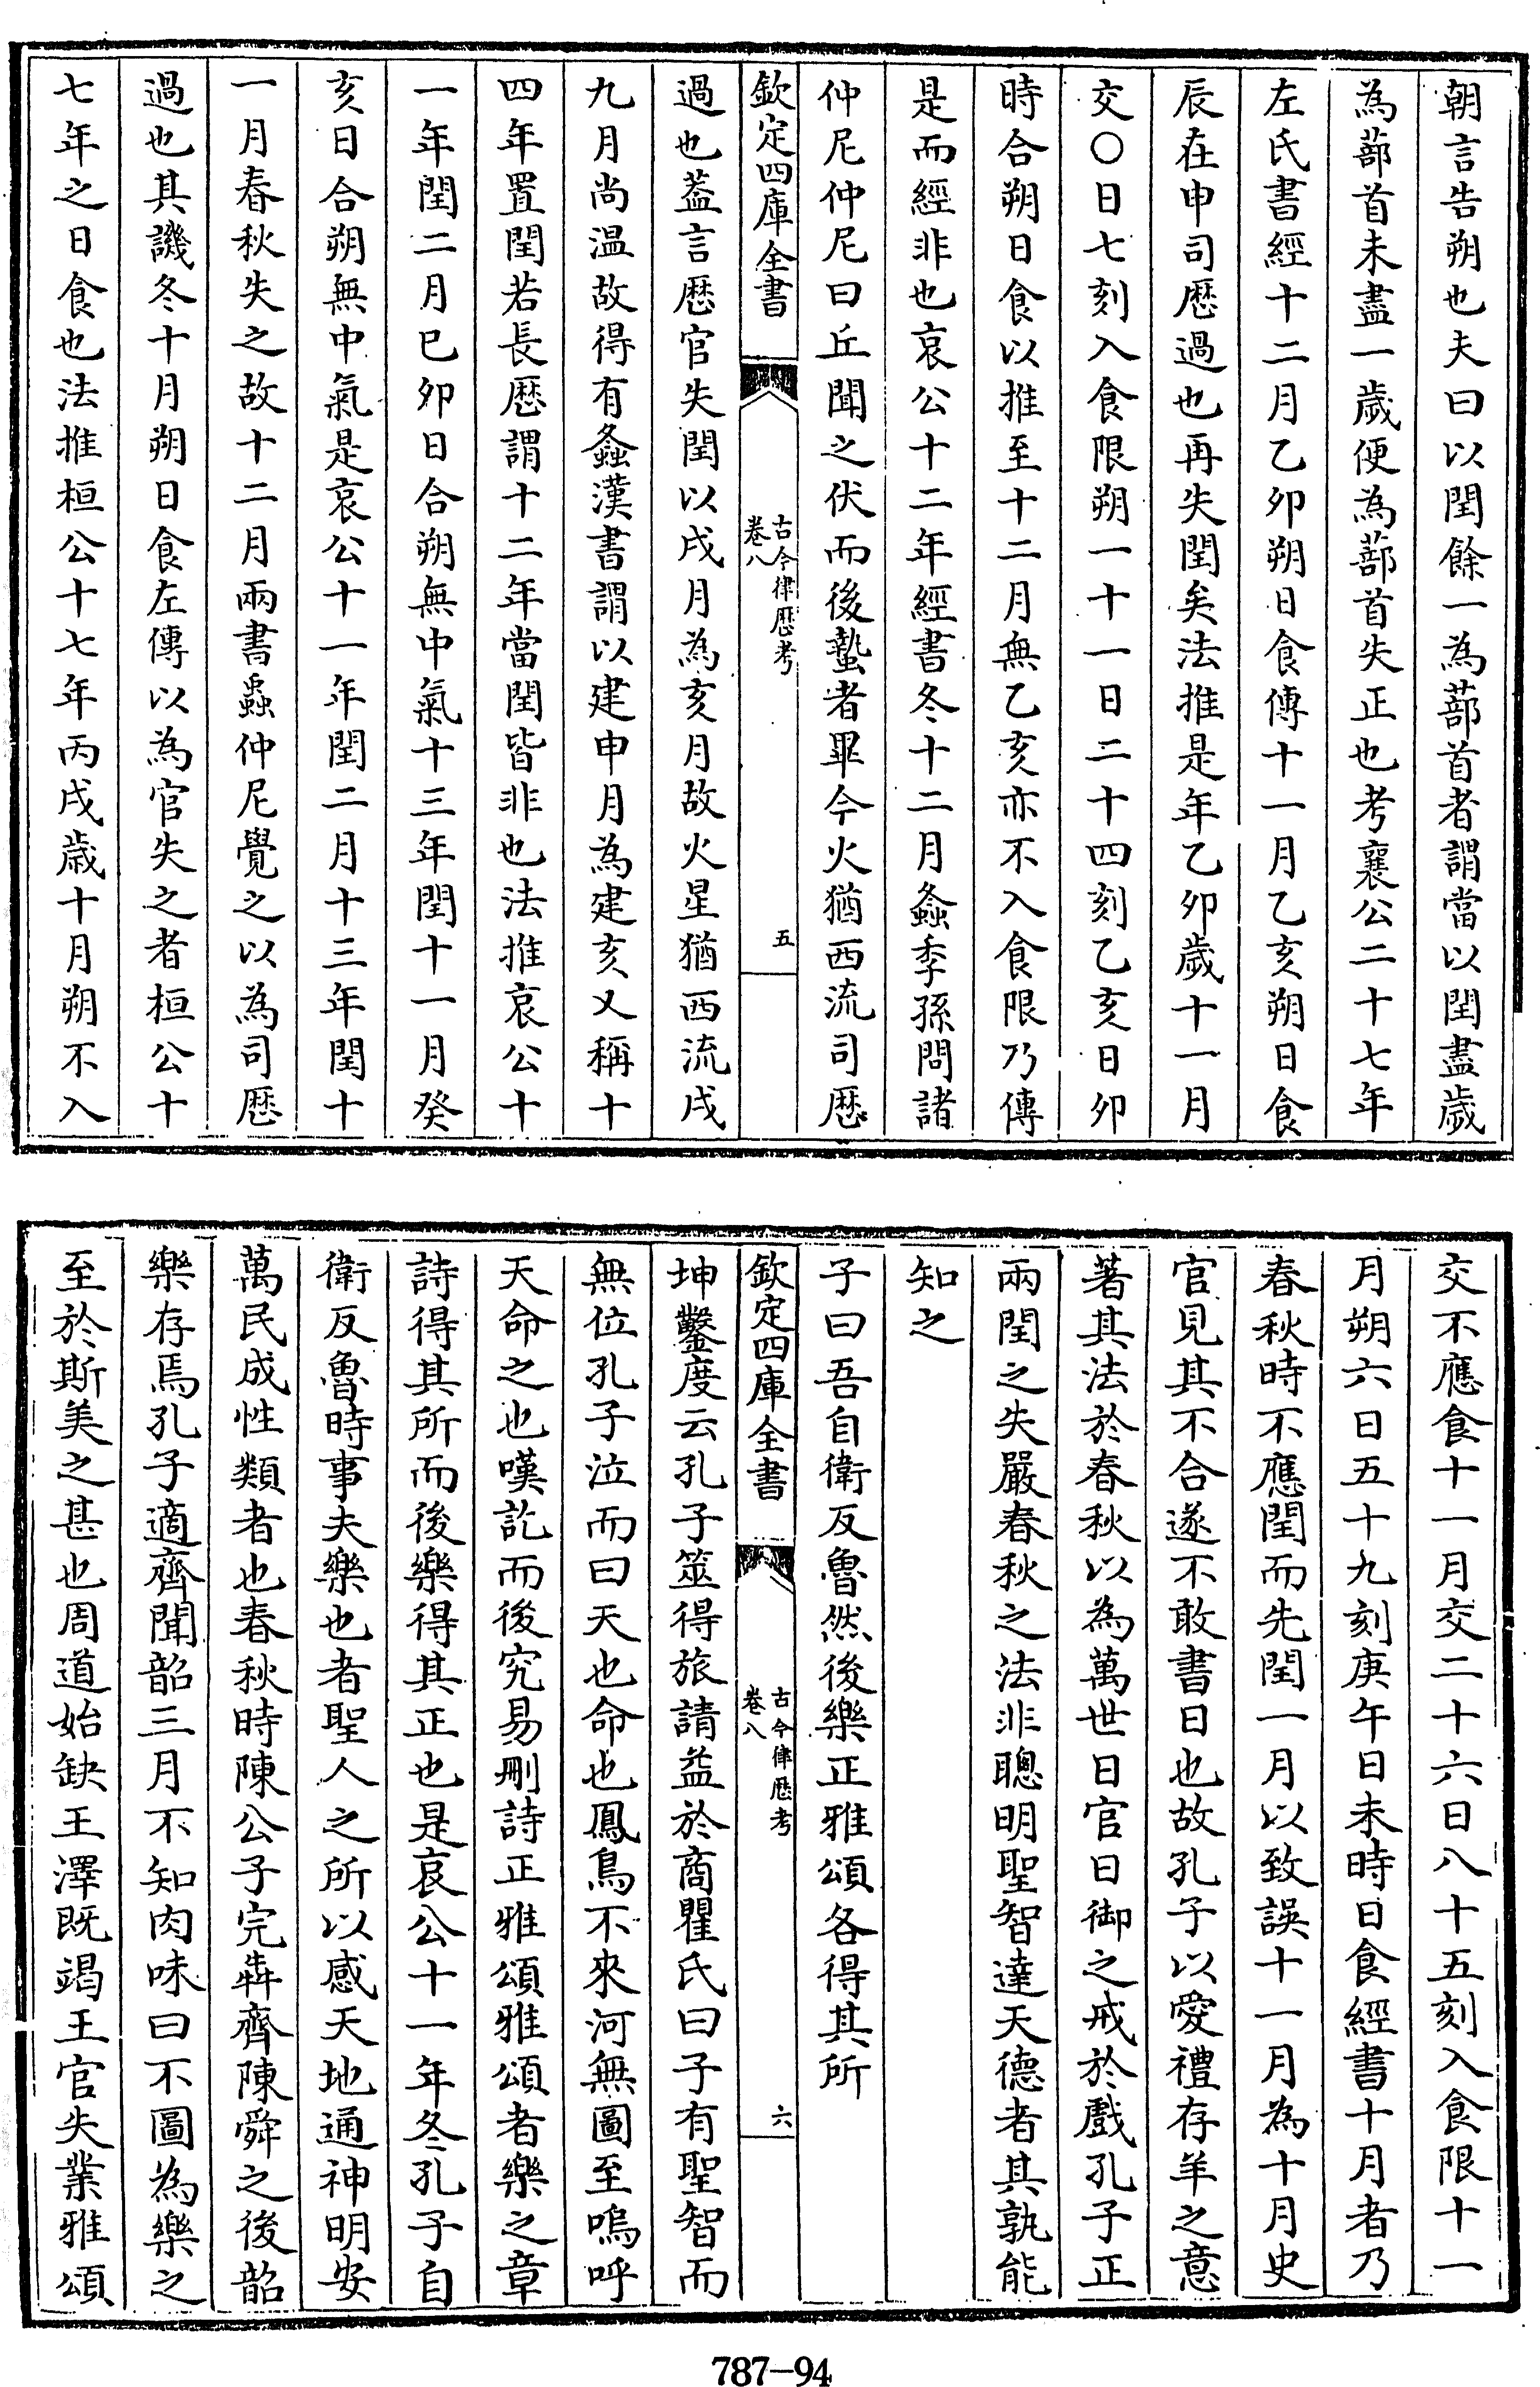 朝言告朔也夫曰以閏餘一為蔀首者謂當以閏盡歲
為蔀首未盡一歲便為蔀首失正也考襄公二十七年
左氏書經十二月乙卯朔日食傳十一月乙亥朔日食
辰在申司厯過也再失閏矣法推是年乙卯歲十一月
交〇日七刻入食限朔一十一日二十四刻乙亥日卯
時合朔日食以推至十二月無乙亥亦不入食限乃傳
是而經非也哀公十二年經書冬十二月螽季孫問諸
仲尼仲尼曰丘聞之伏而後蟄者畢今火猶西流司厯
欽定四庫全書
古今律厯考
卷八
五
過也葢言厯官失閏以戌月為亥月故火星猶西流戌
九月尚温故得有螽漢書謂以建申月為建亥又稱十
四年置閏若長厯謂十二年當閏皆非也法推哀公十
一年閏二月已卯日合朔無中氣十三年閏十一月癸
亥日合朔無中氣是哀公十一年閏二月十三年閏十
一月春秋失之故十二月兩書螽仲尼覺之以為司厯
過也其譏冬十月朔日食左傳以為官失之者桓公十
七年之日食也法推桓公十七年丙戌歲十月朔不入
交不應食十一月交二十六日八十五刻入食限十一
月朔六日五十九刻庚午日未時日食經書十月者乃
春秋時不應閏而先閏一月以致誤十一月為十月史
官見其不合遂不敢書日也故孔子以愛禮存羊之意
著其法於春秋以為萬世日官日御之戒於戲孔子正
兩閏之失嚴春秋之法非聰明聖智達天德者其孰能
知之
子曰吾自衛反魯然後樂正雅頌各得其所
欽定四庫全書
古今律厯考
卷八
六
坤鑿度云孔子筮得旅請益於商瞿氏曰子有聖智而
無位孔子泣而曰天也命也鳳鳥不來河無圖至嗚呼
天命之也嘆訖而後究易刪詩正雅頌雅頌者樂之章
詩得其所而後樂得其正也是哀公十一年冬孔子自
衛反魯時事夫樂也者聖人之所以感天地通神明安
萬民成性類者也春秋時陳公子完犇齊陳舜之後韶
樂存焉孔子適齊聞韶三月不知肉味曰不圖為樂之
至於斯美之甚也周道始缺王澤既竭王官失業雅頌
787-94